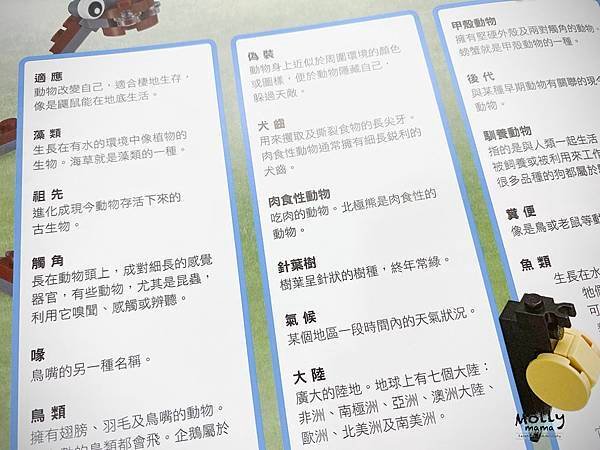 適應
動物改變自己，適合棲地生存，
像是鼴鼠能在地底生活。
藻類
生長在有水的環境中像植物的
生物。海草就是藻類的一種。
祖先
進化成現今動物存活下來的
古生物。
觸角
長在動物頭上，成對細長的感覺
器官，有些動物，尤其是昆蟲，
利用它嗅聞、感觸或辨聽。
喙
鳥嘴的另一種名稱。
鳥類
擁有翅膀、羽毛及鳥嘴的動物。
數的鳥類都會飛。企鵝屬於
偽裝
動物身上近似於周圍環境的顏色
或圖樣，便於動物隱藏自己，
躲過天敵。
犬齒
用來攫取及撕裂食物的長尖牙。
肉食性動物通常擁有細長銳利的
犬齒。
肉食性動物
吃肉的動物。北極熊是肉食性的
動物。
針葉樹
樹葉呈針狀的樹種，終年常綠。
氣候
某個地區一段時間內的天氣狀況。
大陸
廣大的陸地。地球上有七個大陸：
非洲、南極洲、亞洲、澳洲大陸、
歐洲、北美及南美洲。
甲殼動物
擁有堅硬外殼及兩對觸角的動物。
螃蟹就是甲殼動物的一種。
後代
與某種早期動物有關聯的現今
動物。
馴養動物
指的是與人類一起生活
被飼養或被利用來工作
很多品種的狗都屬於馴
糞便
像是鳥或老鼠等動
魚類
生長在水
牠們
可
Molly
mama